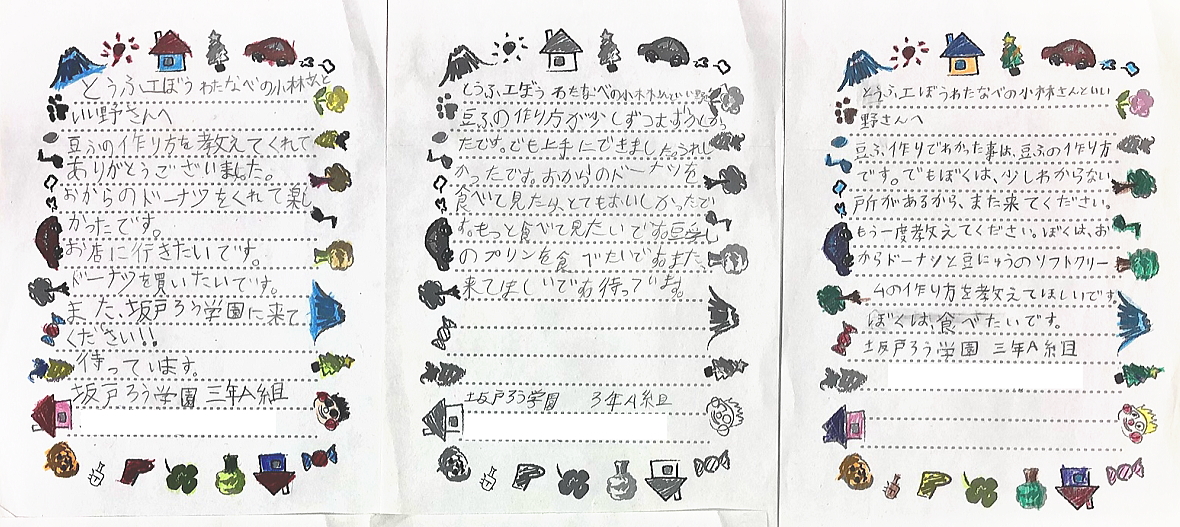 とうふ工ぼう わたなべの小林さんと
いい野さんへ
豆ふの作り方を教えてくれて
ありがとうございました。
おからのドーナツをくれて楽し
かったです。
お店に行きたいです。
ドーナツを買いたいです。
また、坂戸ろう学園に来て
ください!!
待っています。
坂戸ろう学園 三年A組
とうふ工ぼう わたなべの小林さんといい野
豆ふの作り方が少しずつむずかしかっ
たです。でも上手にできました。うれし
かったです。おからのドーナツを
食べて見たら、とてもおいしかったで
す。もっと食べて見たいです。豆
のプリンを食べたいです。また、
来てほしいです。待っています。
坂戸ろう学園 3年A組
とうふ工ぼうわたなべの小林さんといい
野さんへ
豆ふ作りでわかった事は、豆ふの作り方
です。でもぼくは、少しわからない
所があるから、また来てください。
もう一度教えてください。ぼくは、お
からドーナツと豆にゅうのソフトクリー
ムの作り方を教えてほしいです。
ぼくは、食べたいです。
坂戸ろう学園 三年A組